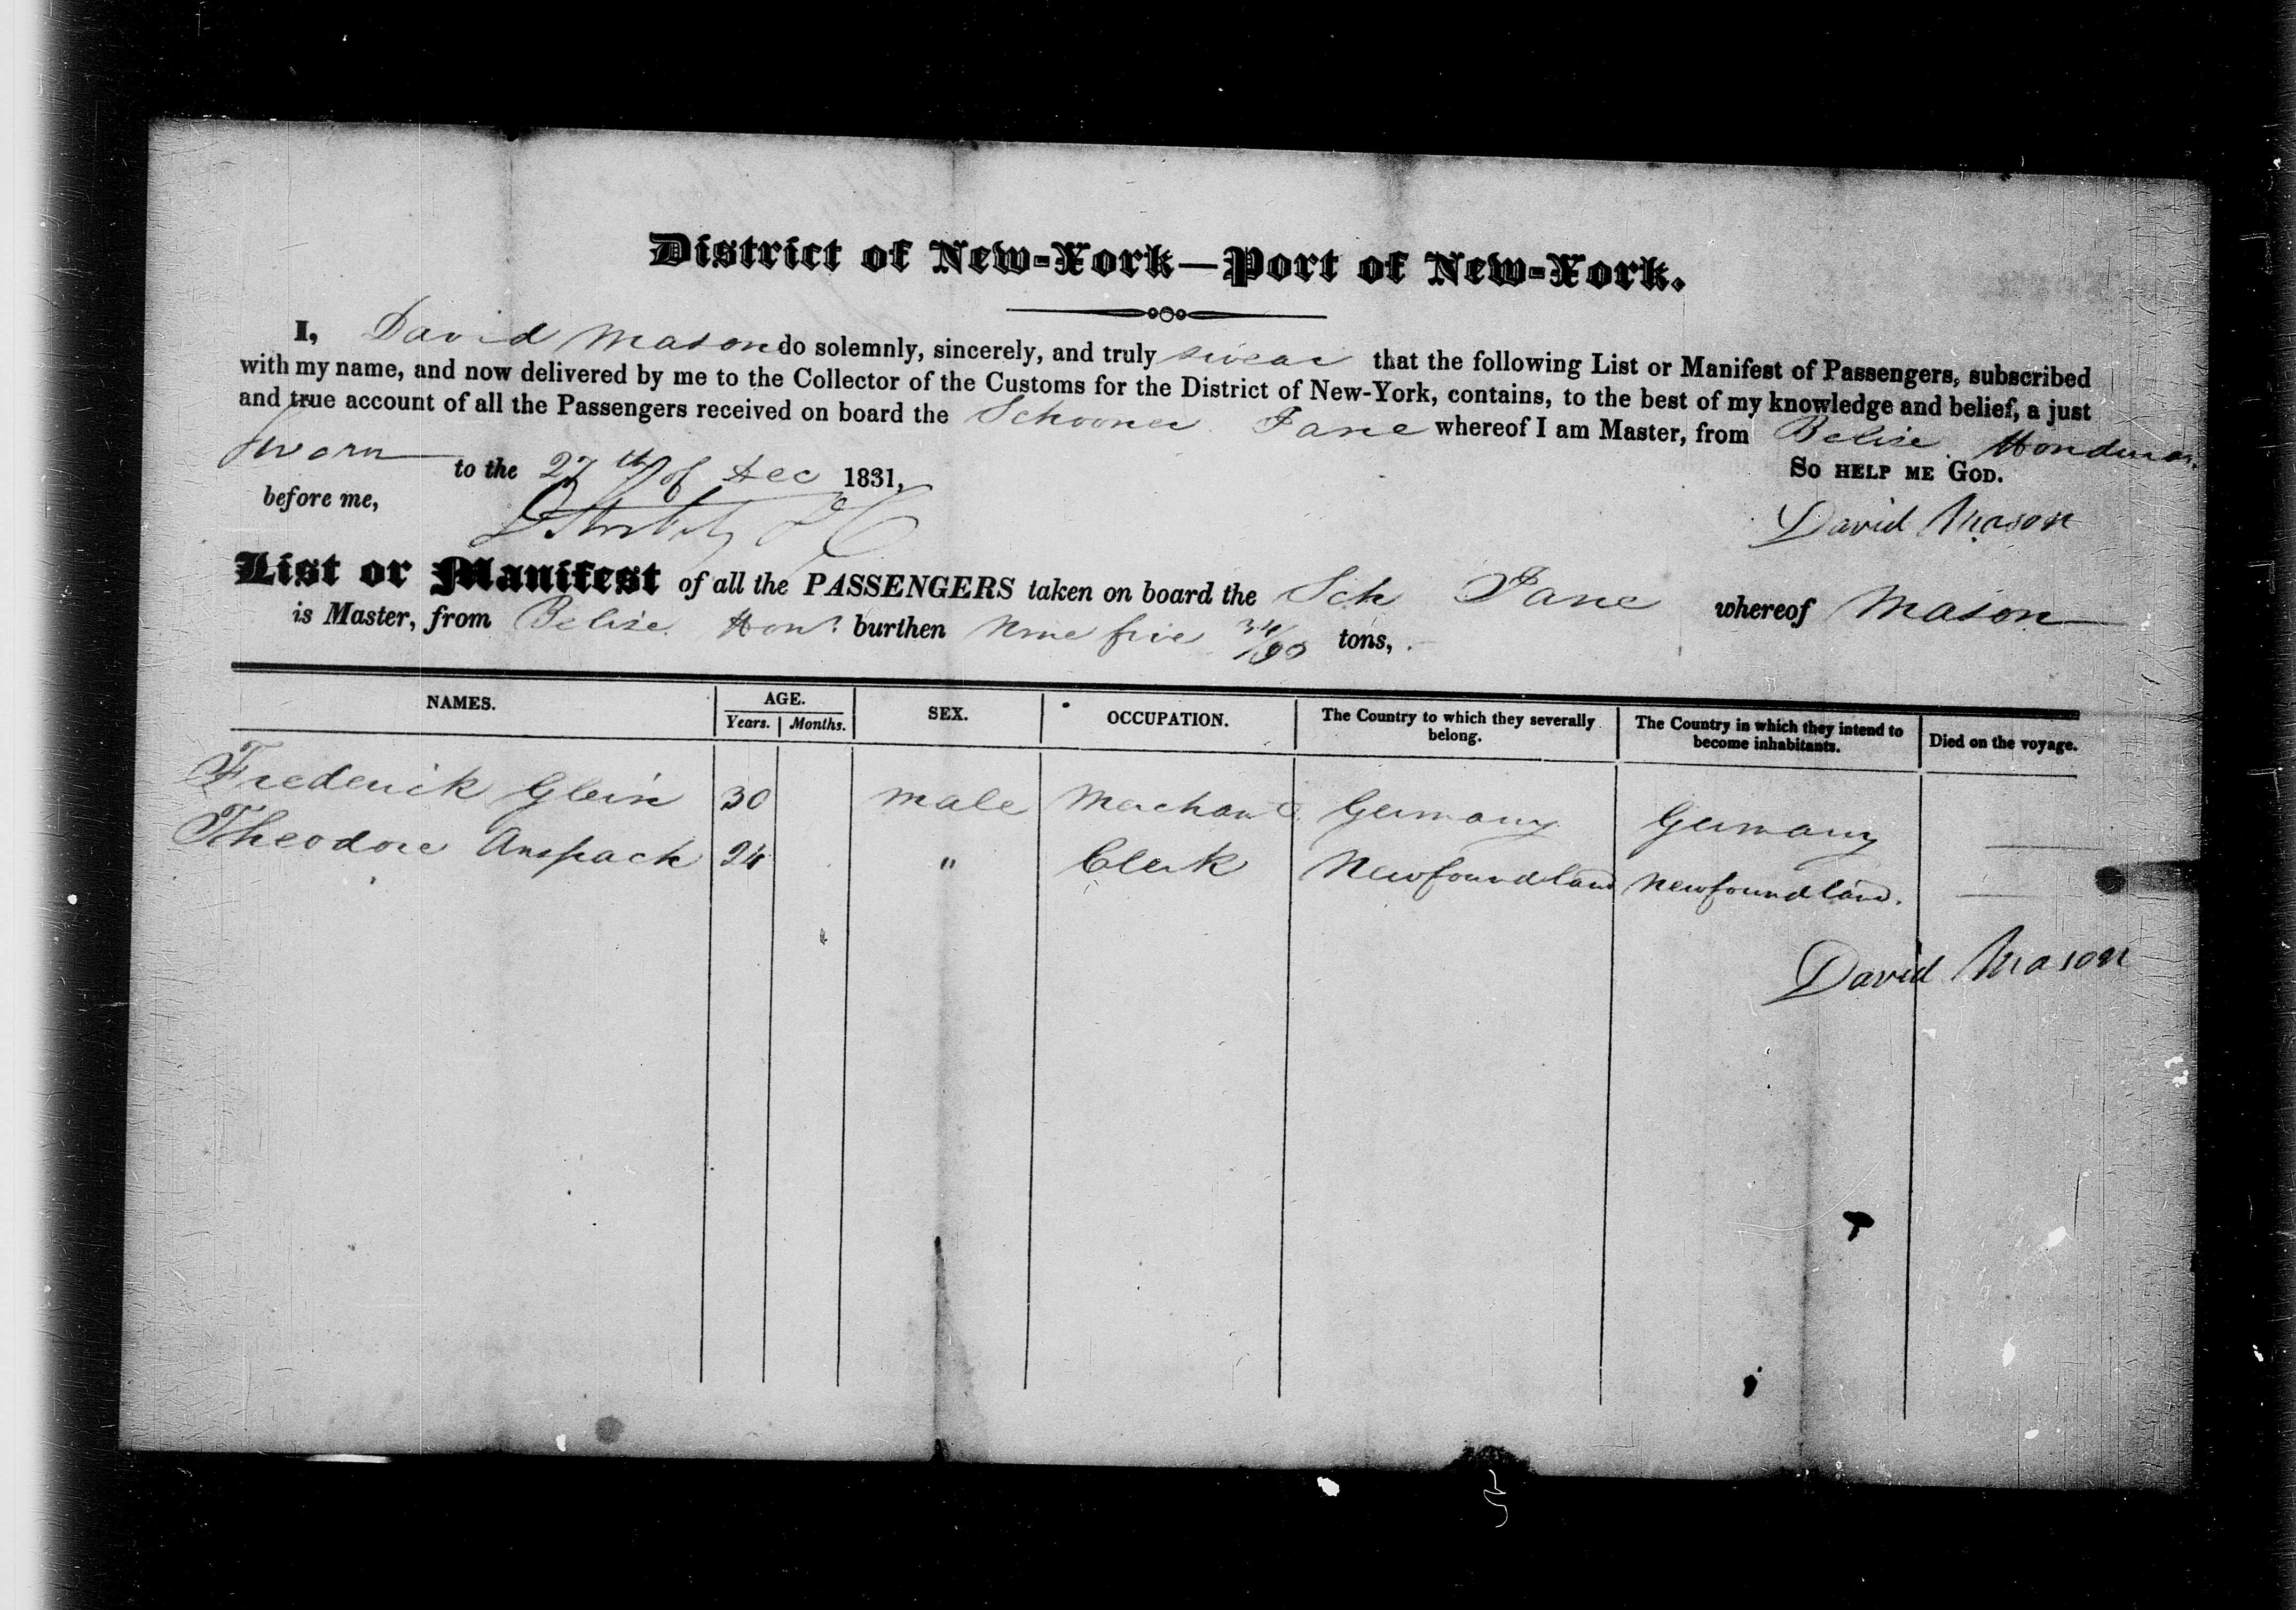 District of New-York—Port of New-York.
I, David Mason do solemnly, sincerely, and truly swear that the following List or Manifest of Passengers, subscribed
with my name, and now delivered by me to the Collector of the Customs for the District of New-York, contains, to the best of my knowledge and belief, a just
and true account of all the Passengers received on board the Schooner Jane whereof I am Master, from Belise Honduras.
Sworn to the 27th of Dec 1831,
So help me God.
before me,
David Mason
List or Manifest of all the PASSENGERS taken on board the Sch Jane whereof Mason
is Master, from Belise Hon. burthen Nine five 34/90 tons,
NAMES. AGE. SEX. OCCUPATION. The Country to which they severally belong. The Country in which they intend to become inhabitants. Died on the voyage.
Years. Months.
Frederick Glein 30 male Merchant Germany Germany —
Theodore Anspach 24 " Clerk Newfoundland Newfoundland. —
David Mason